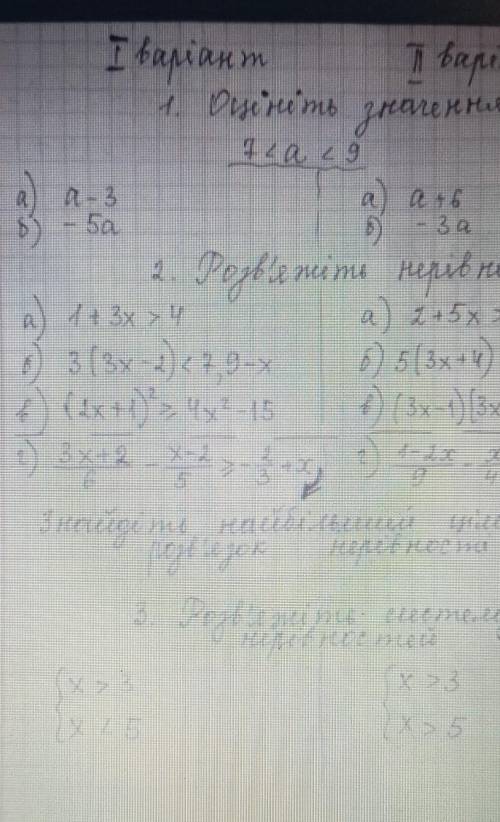 I варіант II варі
1. Оцініть значення
7 < a < 9
а) a - 3 а) a + 6
б) - 5a б) - 3a
2. Розв'яжіть нерівн
а) 1 + 3x > 4 а) 2 + 5x >
б) 3(3x - 2) < 7,9 - x б) 5(3x + 4)
в) (2x + 1)² ≥ 4x² - 15 в) (3x - 1)(3x
г) (3x + 2)/6 - (x - 2)/5 ≥ - 2/3 + x г) (1 - 2x)/9 - x/4
Знайдіть найбільший ціл
розв'язок нерівності
3. Розв'яжіть систем
нерівностей
{ x > 3 { x > 3
{ x < 5 { x > 5